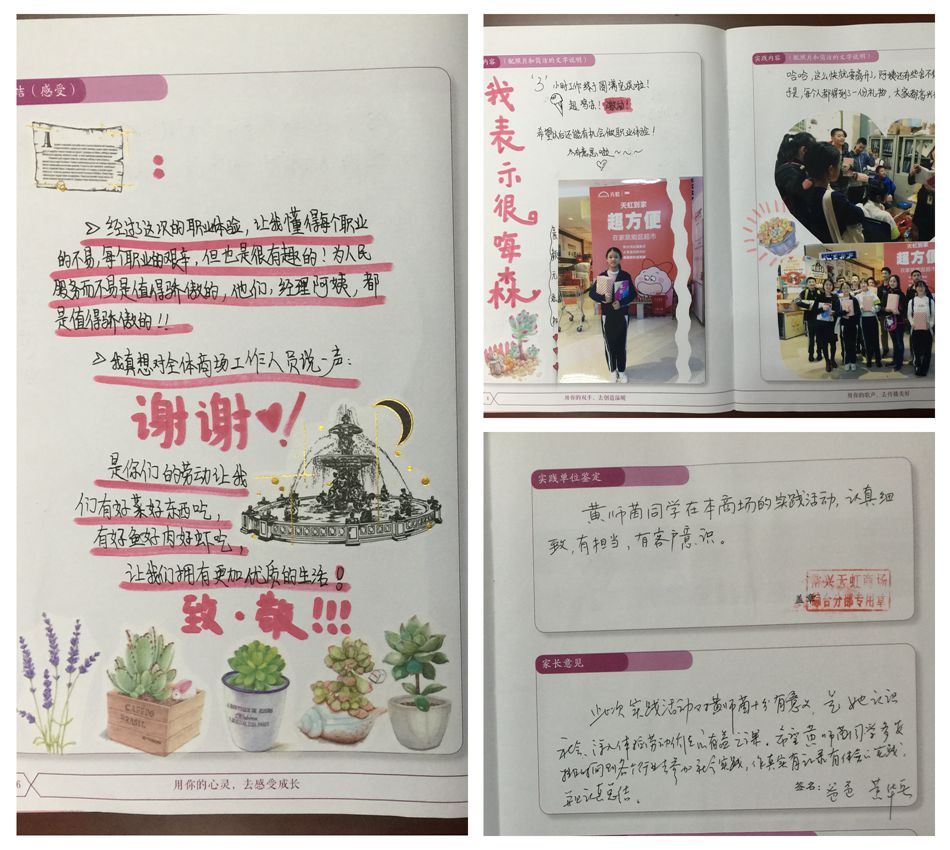 结（感受）
：
>经过这次的职业体验，让我懂得每个职业
的不易，每个职业的艰辛，但也是很有趣的！为人民
服务而不易是值得骄傲的，他们，经理阿姨，都
是值得骄傲的！！
>我真想对全体商场工作人员说一声：
谢谢♥！
是你们的劳动让我
们有好菜好东西吃，
有好鱼好肉好虾吃，
让我们拥有更加优质的生活！
致·敬！！！
用你的心灵，去感受成长
实践内容（配照片和简洁的文字说明）
我表示很嗨森
'3'小时工作终于圆满完成啦！
超鸡冻！激动！
希望以后还能有机会做职业体验！
太有意思啦～～～
天虹
天虹到家
超方便
在家逛街逛超市
用你的双手，去创造温暖
实践内容（配照片和简洁的文字说明）
哈哈，这么快就要离开了，阿姨还有些舍不得
于是，每个人都得到了一份礼物，大家都高兴
天虹到家
超方便
用你的歌声，去传播美好
实践单位鉴定
黄师茵同学在本商场的实践活动，认真细
致，有担当，有客户意识。
盖章
常兴天虹商场
综合分部专用章
家长意见
此次实践活动对黄师茵十分有意义，是她认识
社会、深入体验劳动价值的有益之举。希望黄师茵同学多多
参加社会实践，作真实有记录有体会的实践，
并且认真总结。
签名：爸爸 黄华兵